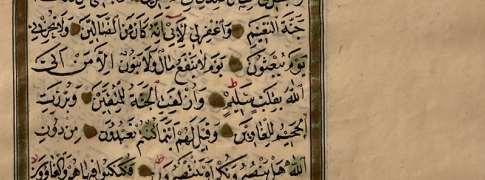 جَنَّةِ النَّعِيمِ وَاغْفِرْ لِأَبِي إِنَّهُ كَانَ مِنَ الضَّالِّينَ وَلَا تُخْزِنِي
يَوْمَ يُبْعَثُونَ يَوْمَ لَا يَنْفَعُ مَالٌ وَلَا بَنُونَ إِلَّا مَنْ أَتَى
اللَّهَ بِقَلْبٍ سَلِيمٍ وَأُزْلِفَتِ الْجَنَّةُ لِلْمُتَّقِينَ وَبُرِّزَتِ
الْجَحِيمُ لِلْغَاوِينَ وَقِيلَ لَهُمْ أَيْنَمَا كُنْتُمْ تَعْبُدُونَ مِنْ دُونِ
اللَّهِ هَلْ يَنْصُرُونَكُمْ أَوْ يَنْتَصِرُونَ فَكُبْكِبُوا فِيهَا هُمْ وَالْغَاوُونَ